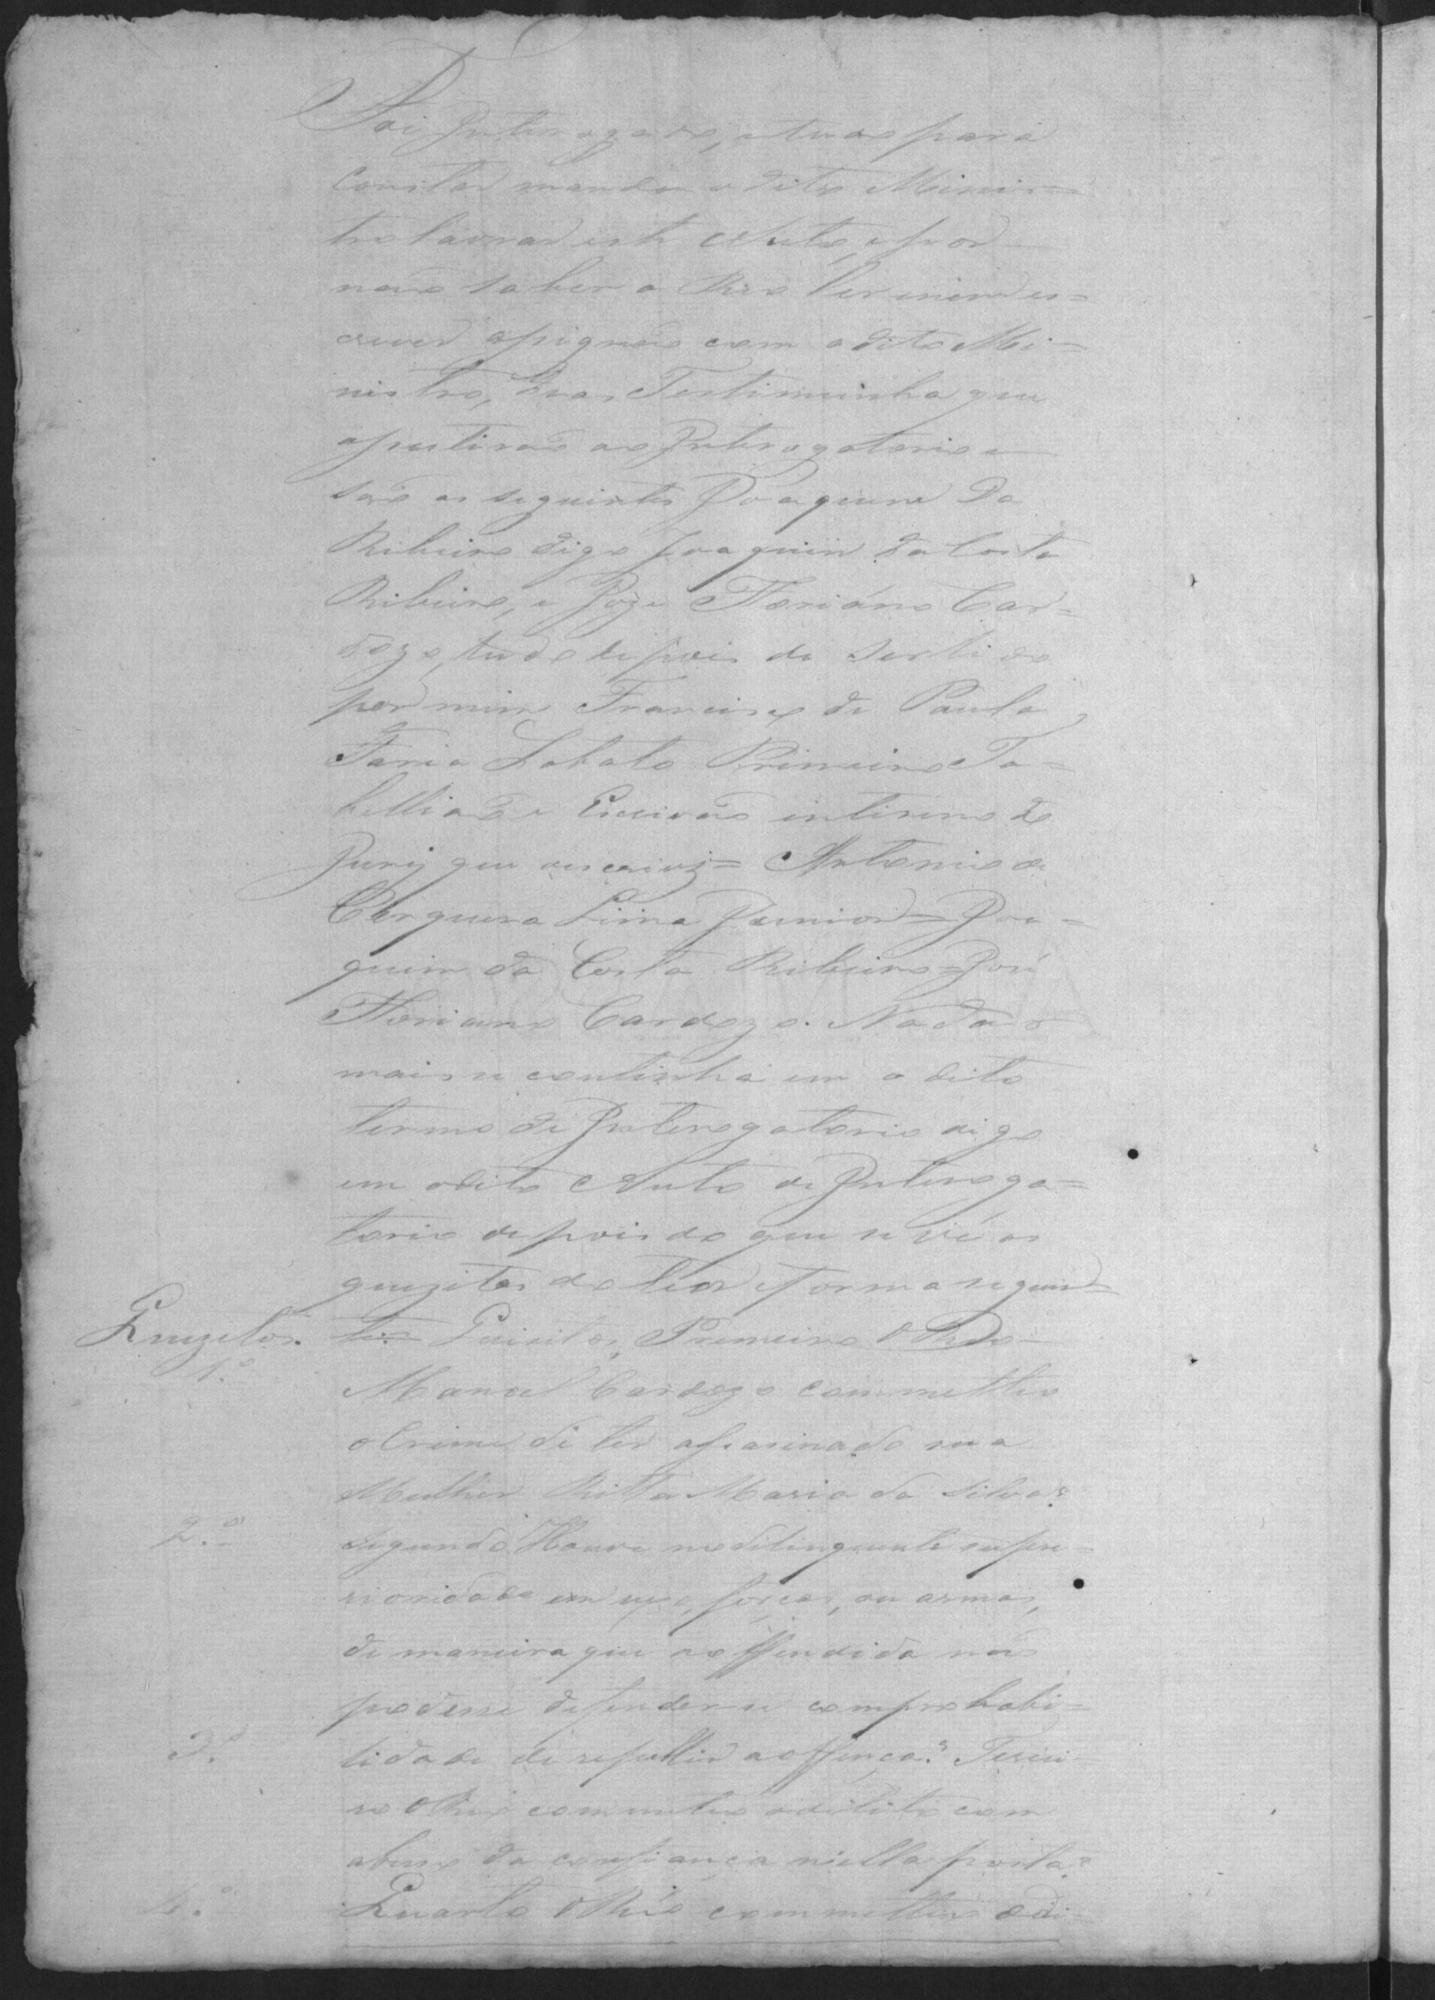 Foi Interrogado, e tudo para
constar mandou o dito Minis=
tro lavrar este Auto, e por
não saber o Reo ler nem es=
crever assignou com o dito Mi=
nistro, duas Testimunha que
assistirão ao Interogatorio e
são as seguintes Joaquim Da
Ribeiro digo Joaquim da Costa
Ribeiro, e Joze Floriano Car=
dozo, tudo depois de ser lido
por mim Francisco de Paula
Faria Lobato Primeiro Ta=
bellião e Escrivão interino do
Jury que escrevi = Antonio de
Cerqueira Lima Junior = Joa=
quim da Costa Ribeiro = José
Floriano Cardozo. Nada
mais se continha em o dito
termo de Interogatorio digo
em o dito Auto de Interoga=
torio depois do que se vê os
quezitos do teor e forma seguin=
Quezitos. te = Quisitos, Primeiro O Reo
1.º Manoel Cardozo commetteo
o Crime de ter assasinado sua
Mulher Ritta Maria da Silva?
2.º Segundo Houve no delinquente supe=
rioridade em sexo, forças, ou armas,
de maneira que a offendida não
podesse defender-se com probabi=
3.º lidade de repellir a offença? Tercei=
ro O Reo commetteo o delito com
abuso da confiança n'elle posta?
4.º Quarto O Réo commetteo o di=